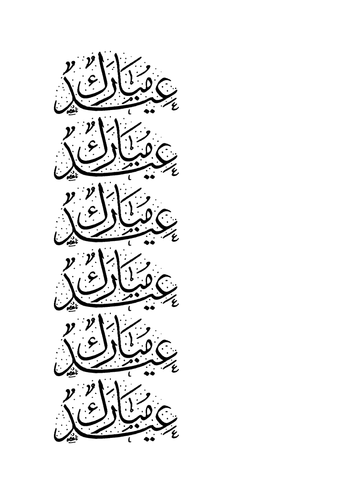 عيد مبارك
عيد مبارك
عيد مبارك
عيد مبارك
عيد مبارك
عيد مبارك